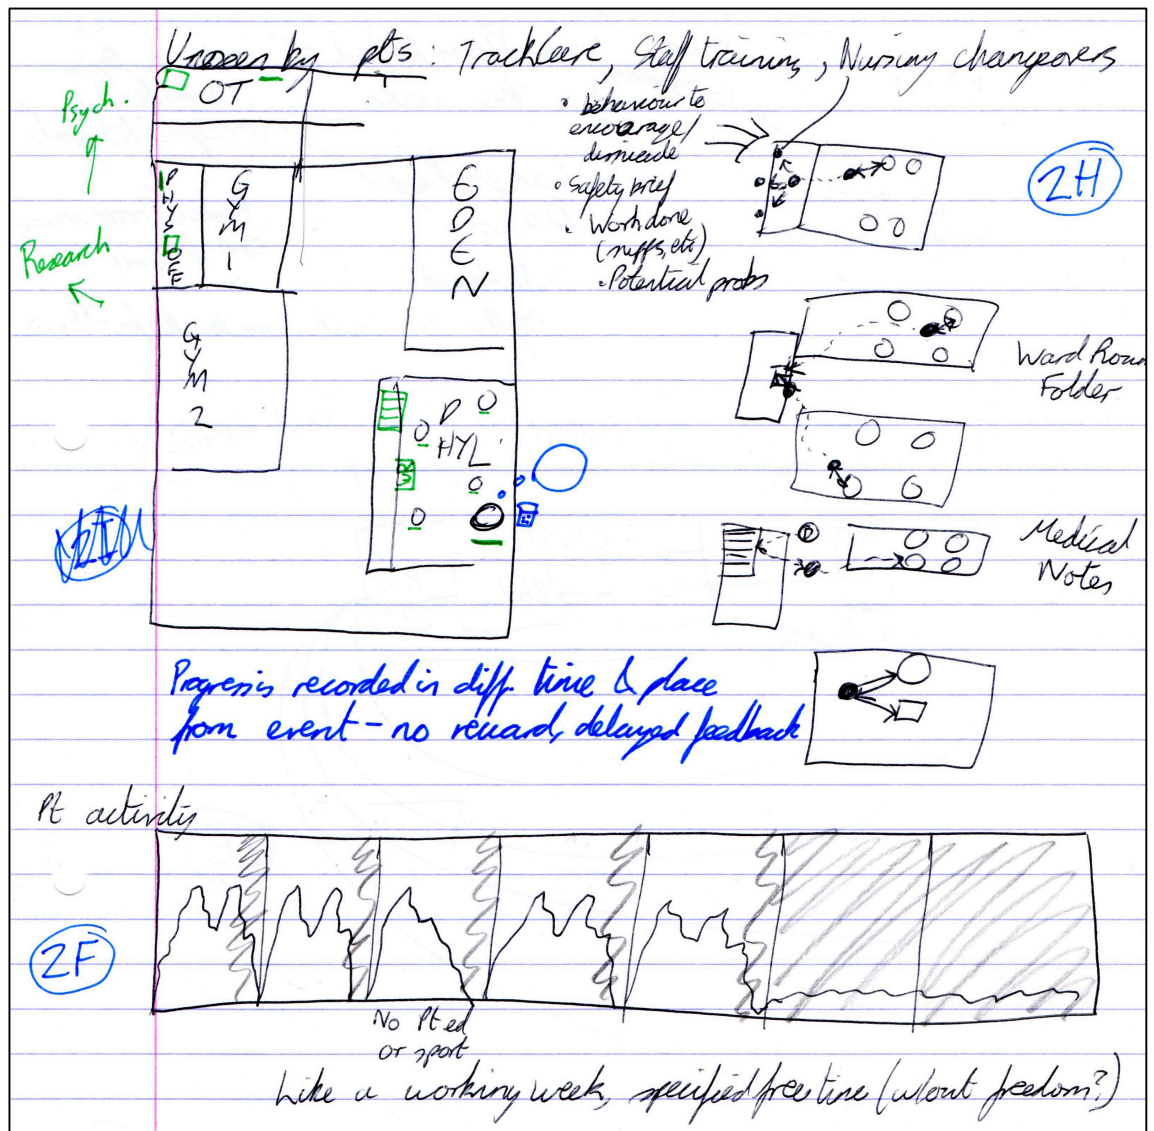 Unseen by pts: TrackCare, Staff training, Nursing changeovers
OT
Psych.
Research
PHYS OFF
GYM 1
GDEN
GYM 2
DHYL
WR
• behaviour to
encourage/
• Safety brief
• Work done
(sniffs, etc)
• Potential probs
2H
Ward Roun
Folder
Medical
Notes
Progress is recorded in diff. time & place
from event - no reward, delayed feedback
Pt activity
2F
No Pt ed
or sport
Like a working week, specified free time (w/out freedom?)